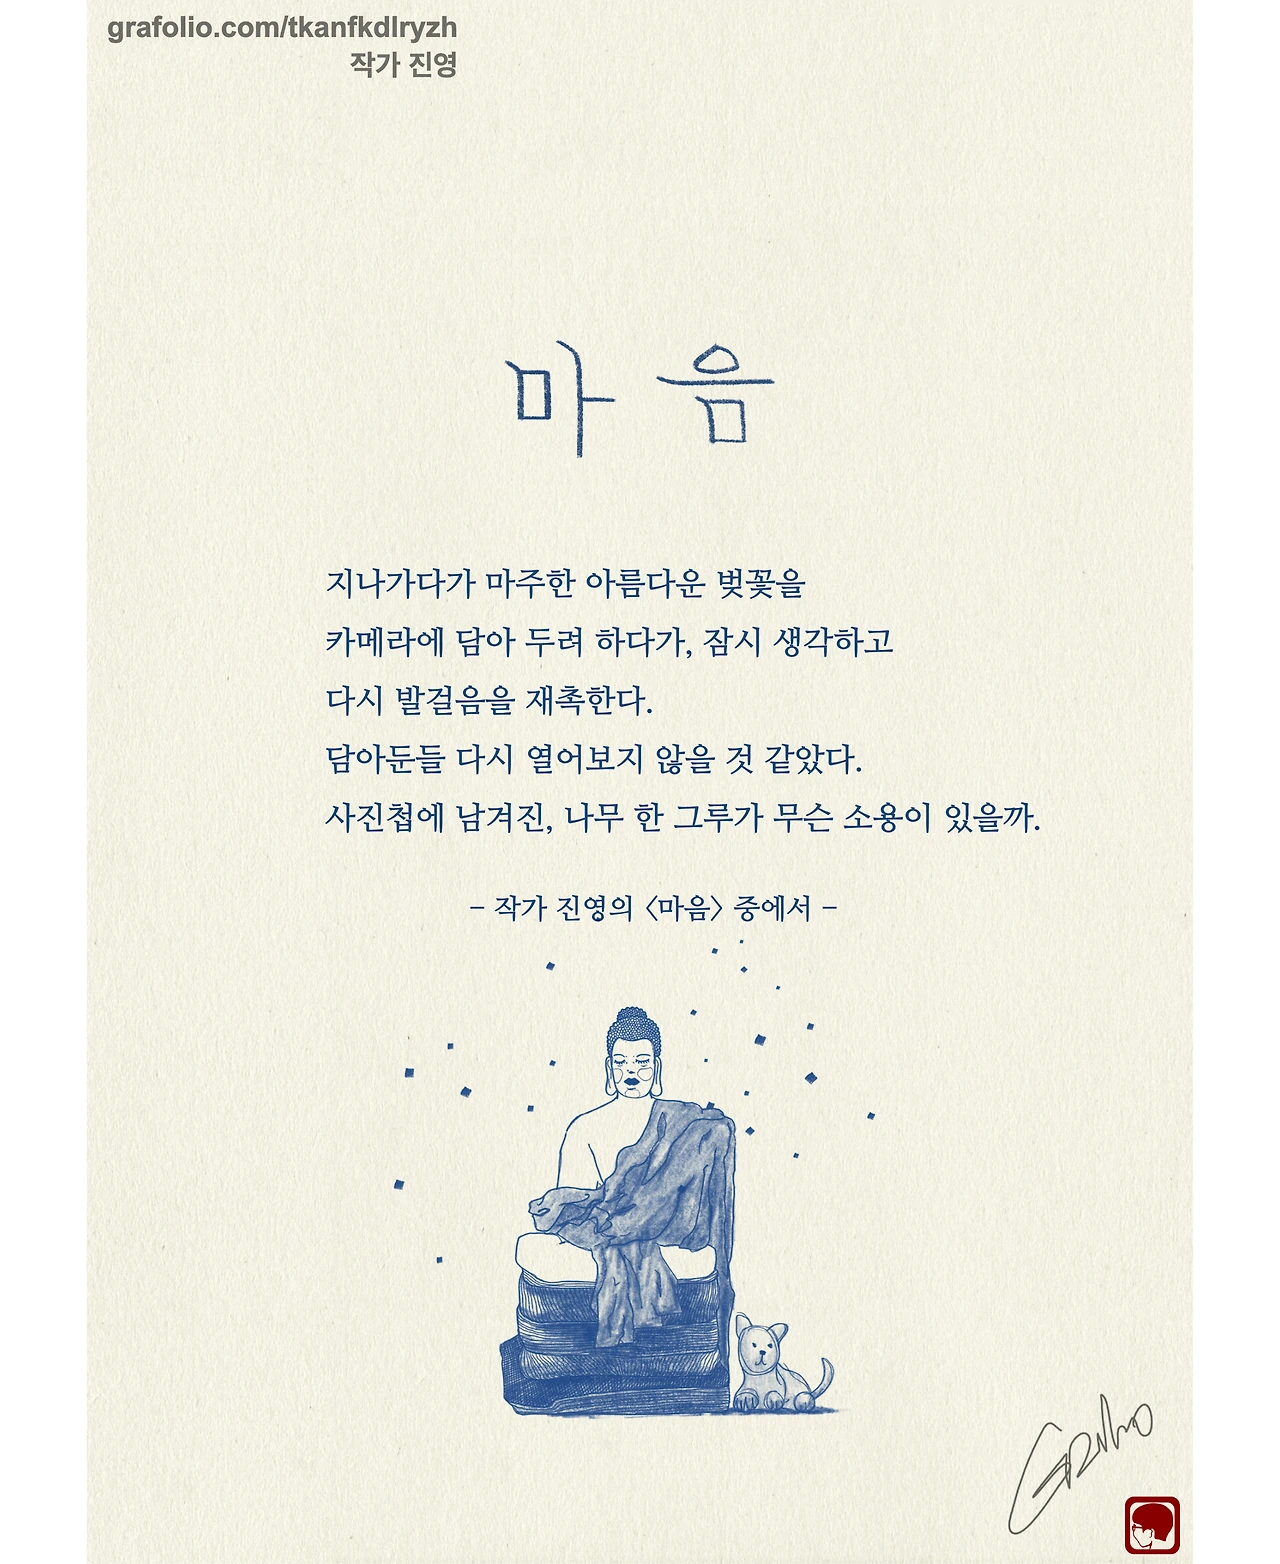 grafolio.com/tkanfkdlryzh
작가 진영
마음
지나가다가 마주한 아름다운 벚꽃을
카메라에 담아 두려 하다가, 잠시 생각하고
다시 발걸음을 재촉한다.
담아둔들 다시 열어보지 않을 것 같았다.
사진첩에 남겨진, 나무 한 그루가 무슨 소용이 있을까.
– 작가 진영의 〈마음〉 중에서 –